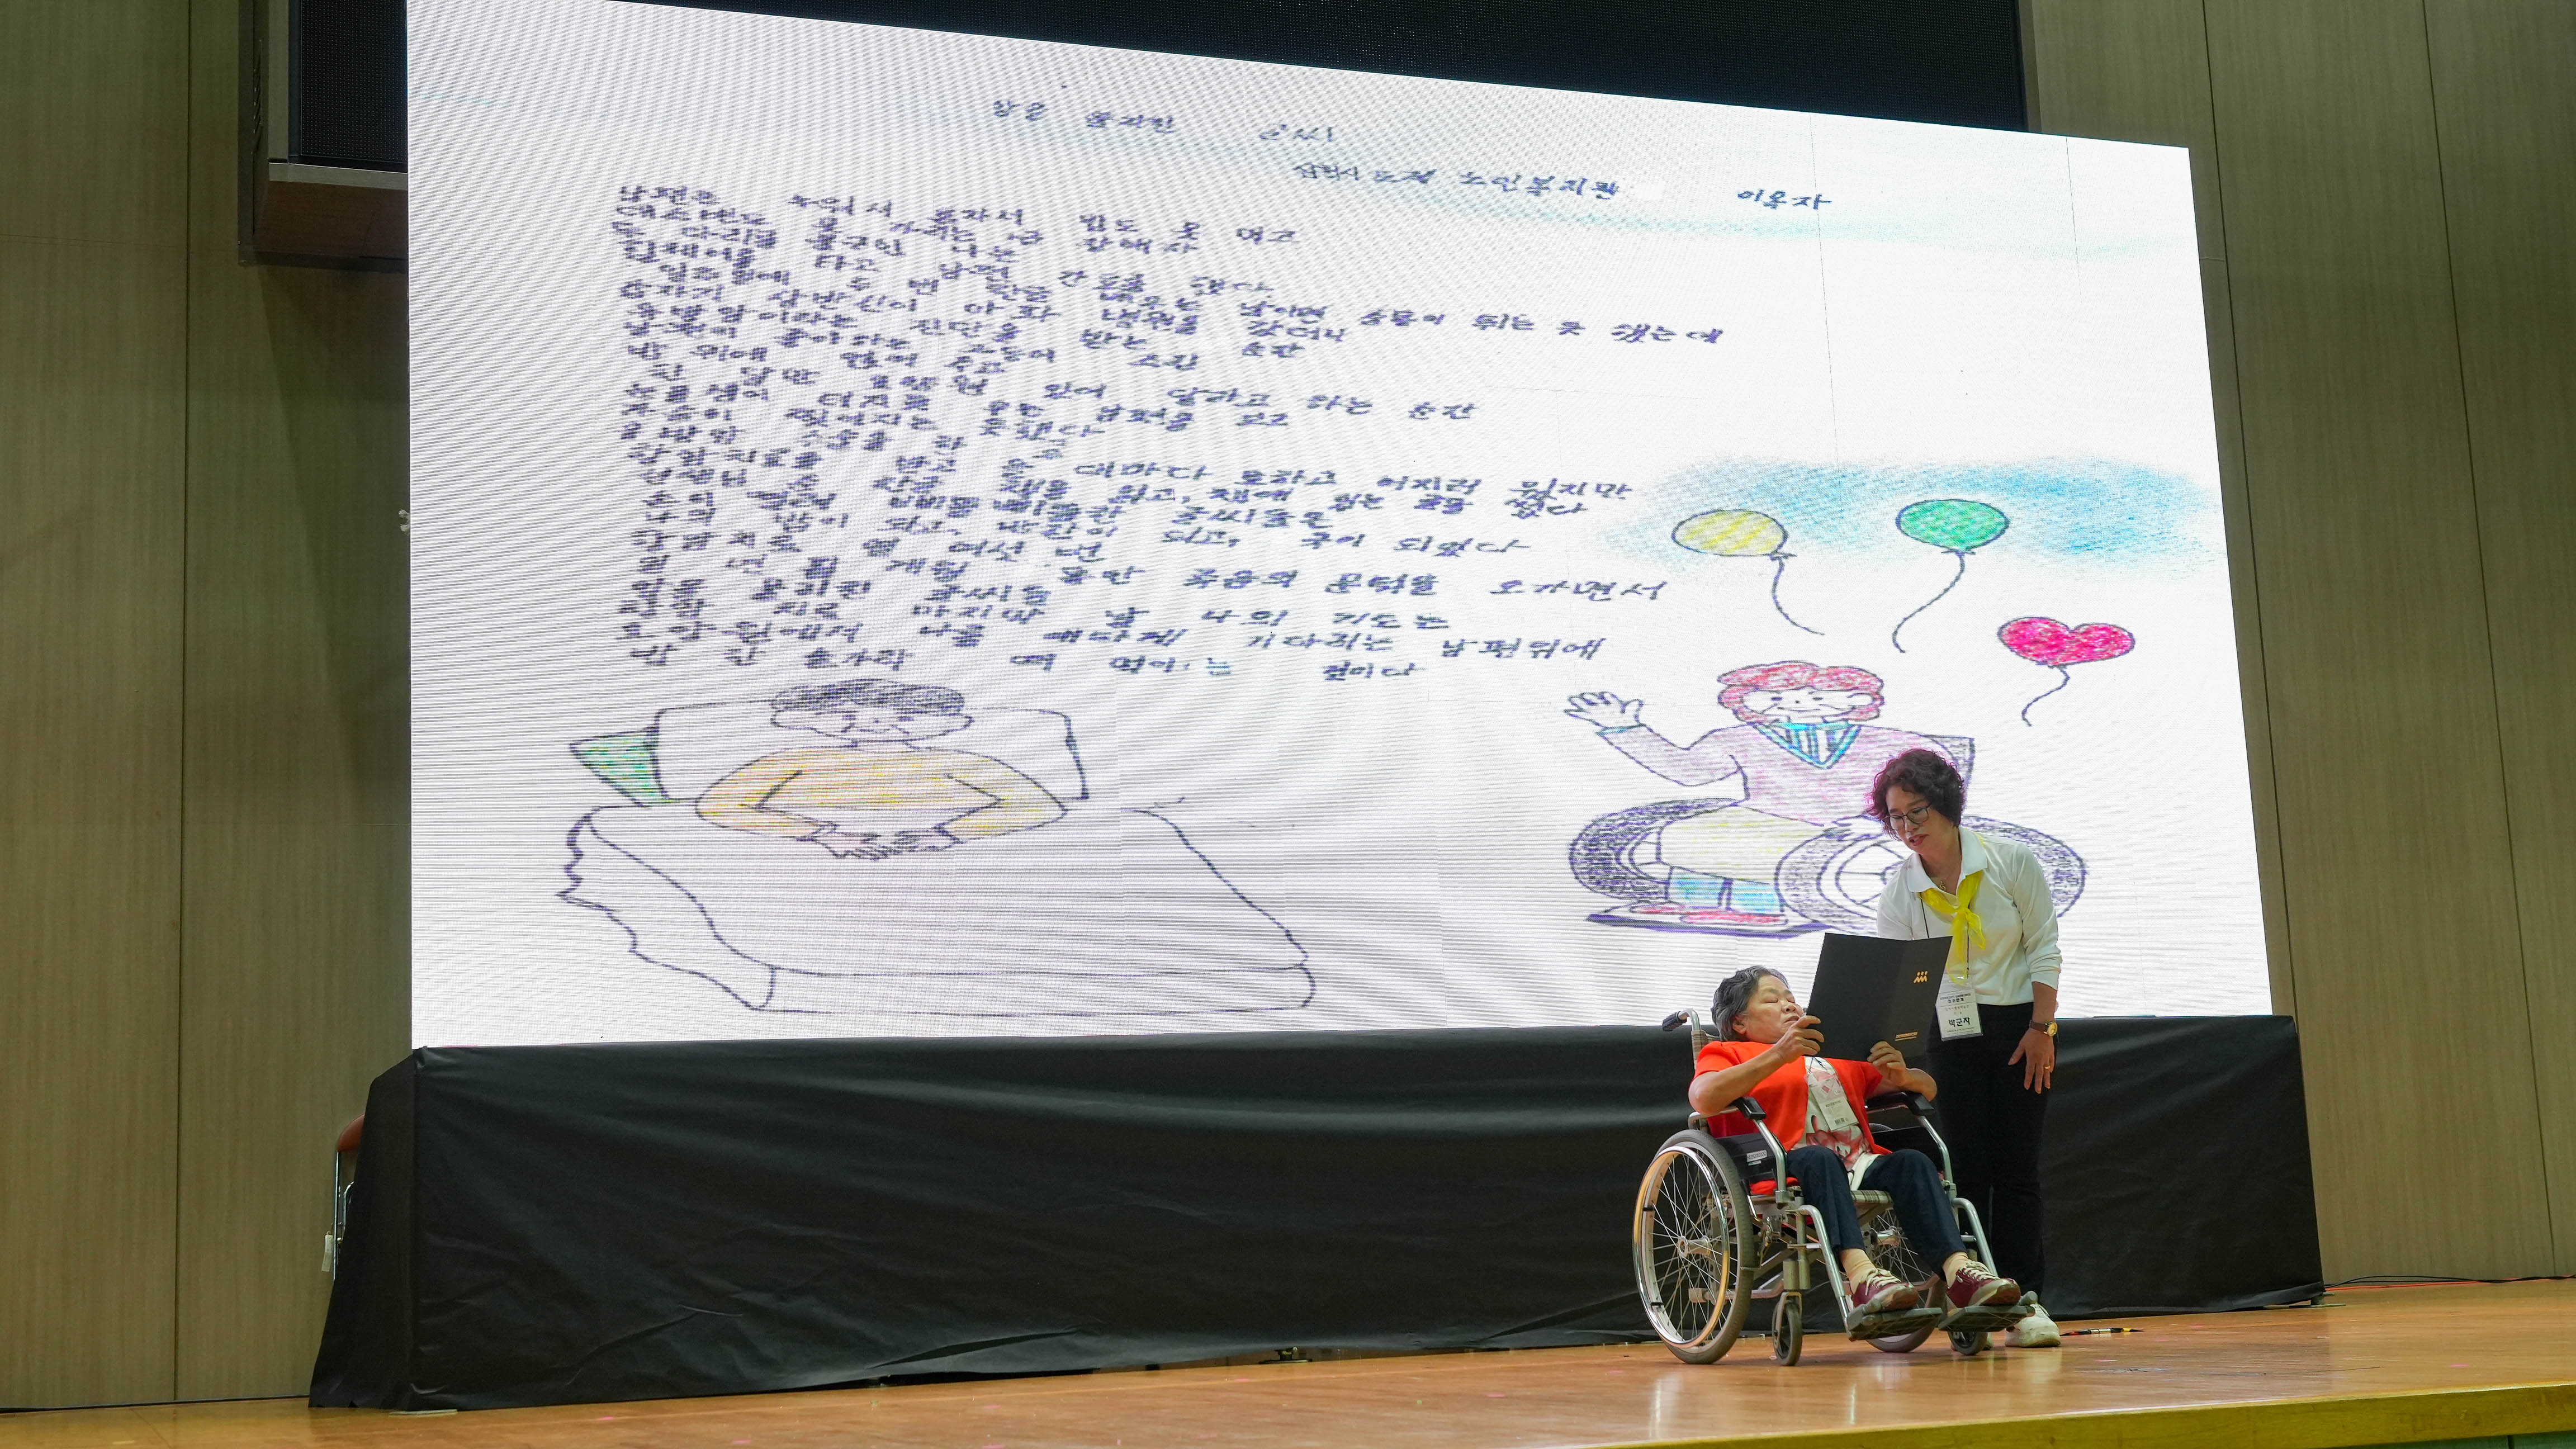 암을 물리친 글씨
삼척시 도계 노인복지관 이옥자
남편은 누워서 혼자서 밥도 못 먹고
대소변도 못 가리는 1급 장애자
두 다리를 불구인 나는
휠체어를 타고 남편 간호를 했다
일주일에 두 번 한글 배우는 날이면 숨통이 튀는 듯 했는데
갑자기 상반신이 아파 병원을 갔더니
유방암이라는 진단을 받는 순간
남편이 좋아하는 고등어 조림
밥 위에 얹어 주고
한 달만 요양원 있어 달라고 하는 순간
눈물샘이 터지듯 우는 남편을 보고
가슴이 찢어지는 듯했다
유방암 수술을 한 후
항암치료를 받고 올 때마다 토하고 어지러 웠지만
선생님 준 한글 책을 읽고, 책에 있는 글을 썼다
손이 떨려 삐뚤삐뚤한 글씨들은
나의 밥이 되고, 반찬이 되고, 국이 되었다
항암치료 열 여섯 번
일 년 팔 개월 동안 죽음의 문턱을 오가면서
암을 물리친 글씨들
항암 치료 마지막 날 나의 기도는
요양원에서 나를 애타게 기다리는 남편위에
밥 한 숟가락 떠 먹이는 것이다
박군자